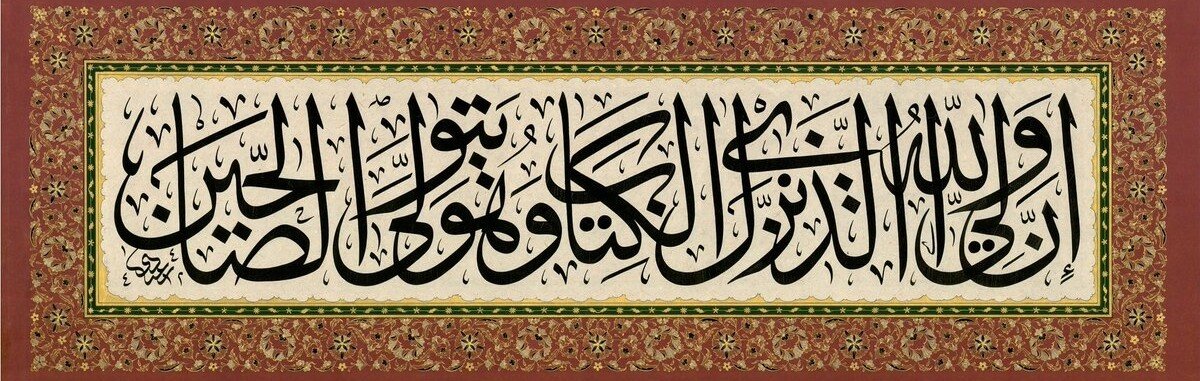 إِنَّ وَلِيِّيَ اللَّهُ الَّذِي نَزَّلَ الْكِتَابَ وَهُوَ يَتَوَلَّى الصَّالِحِينَ